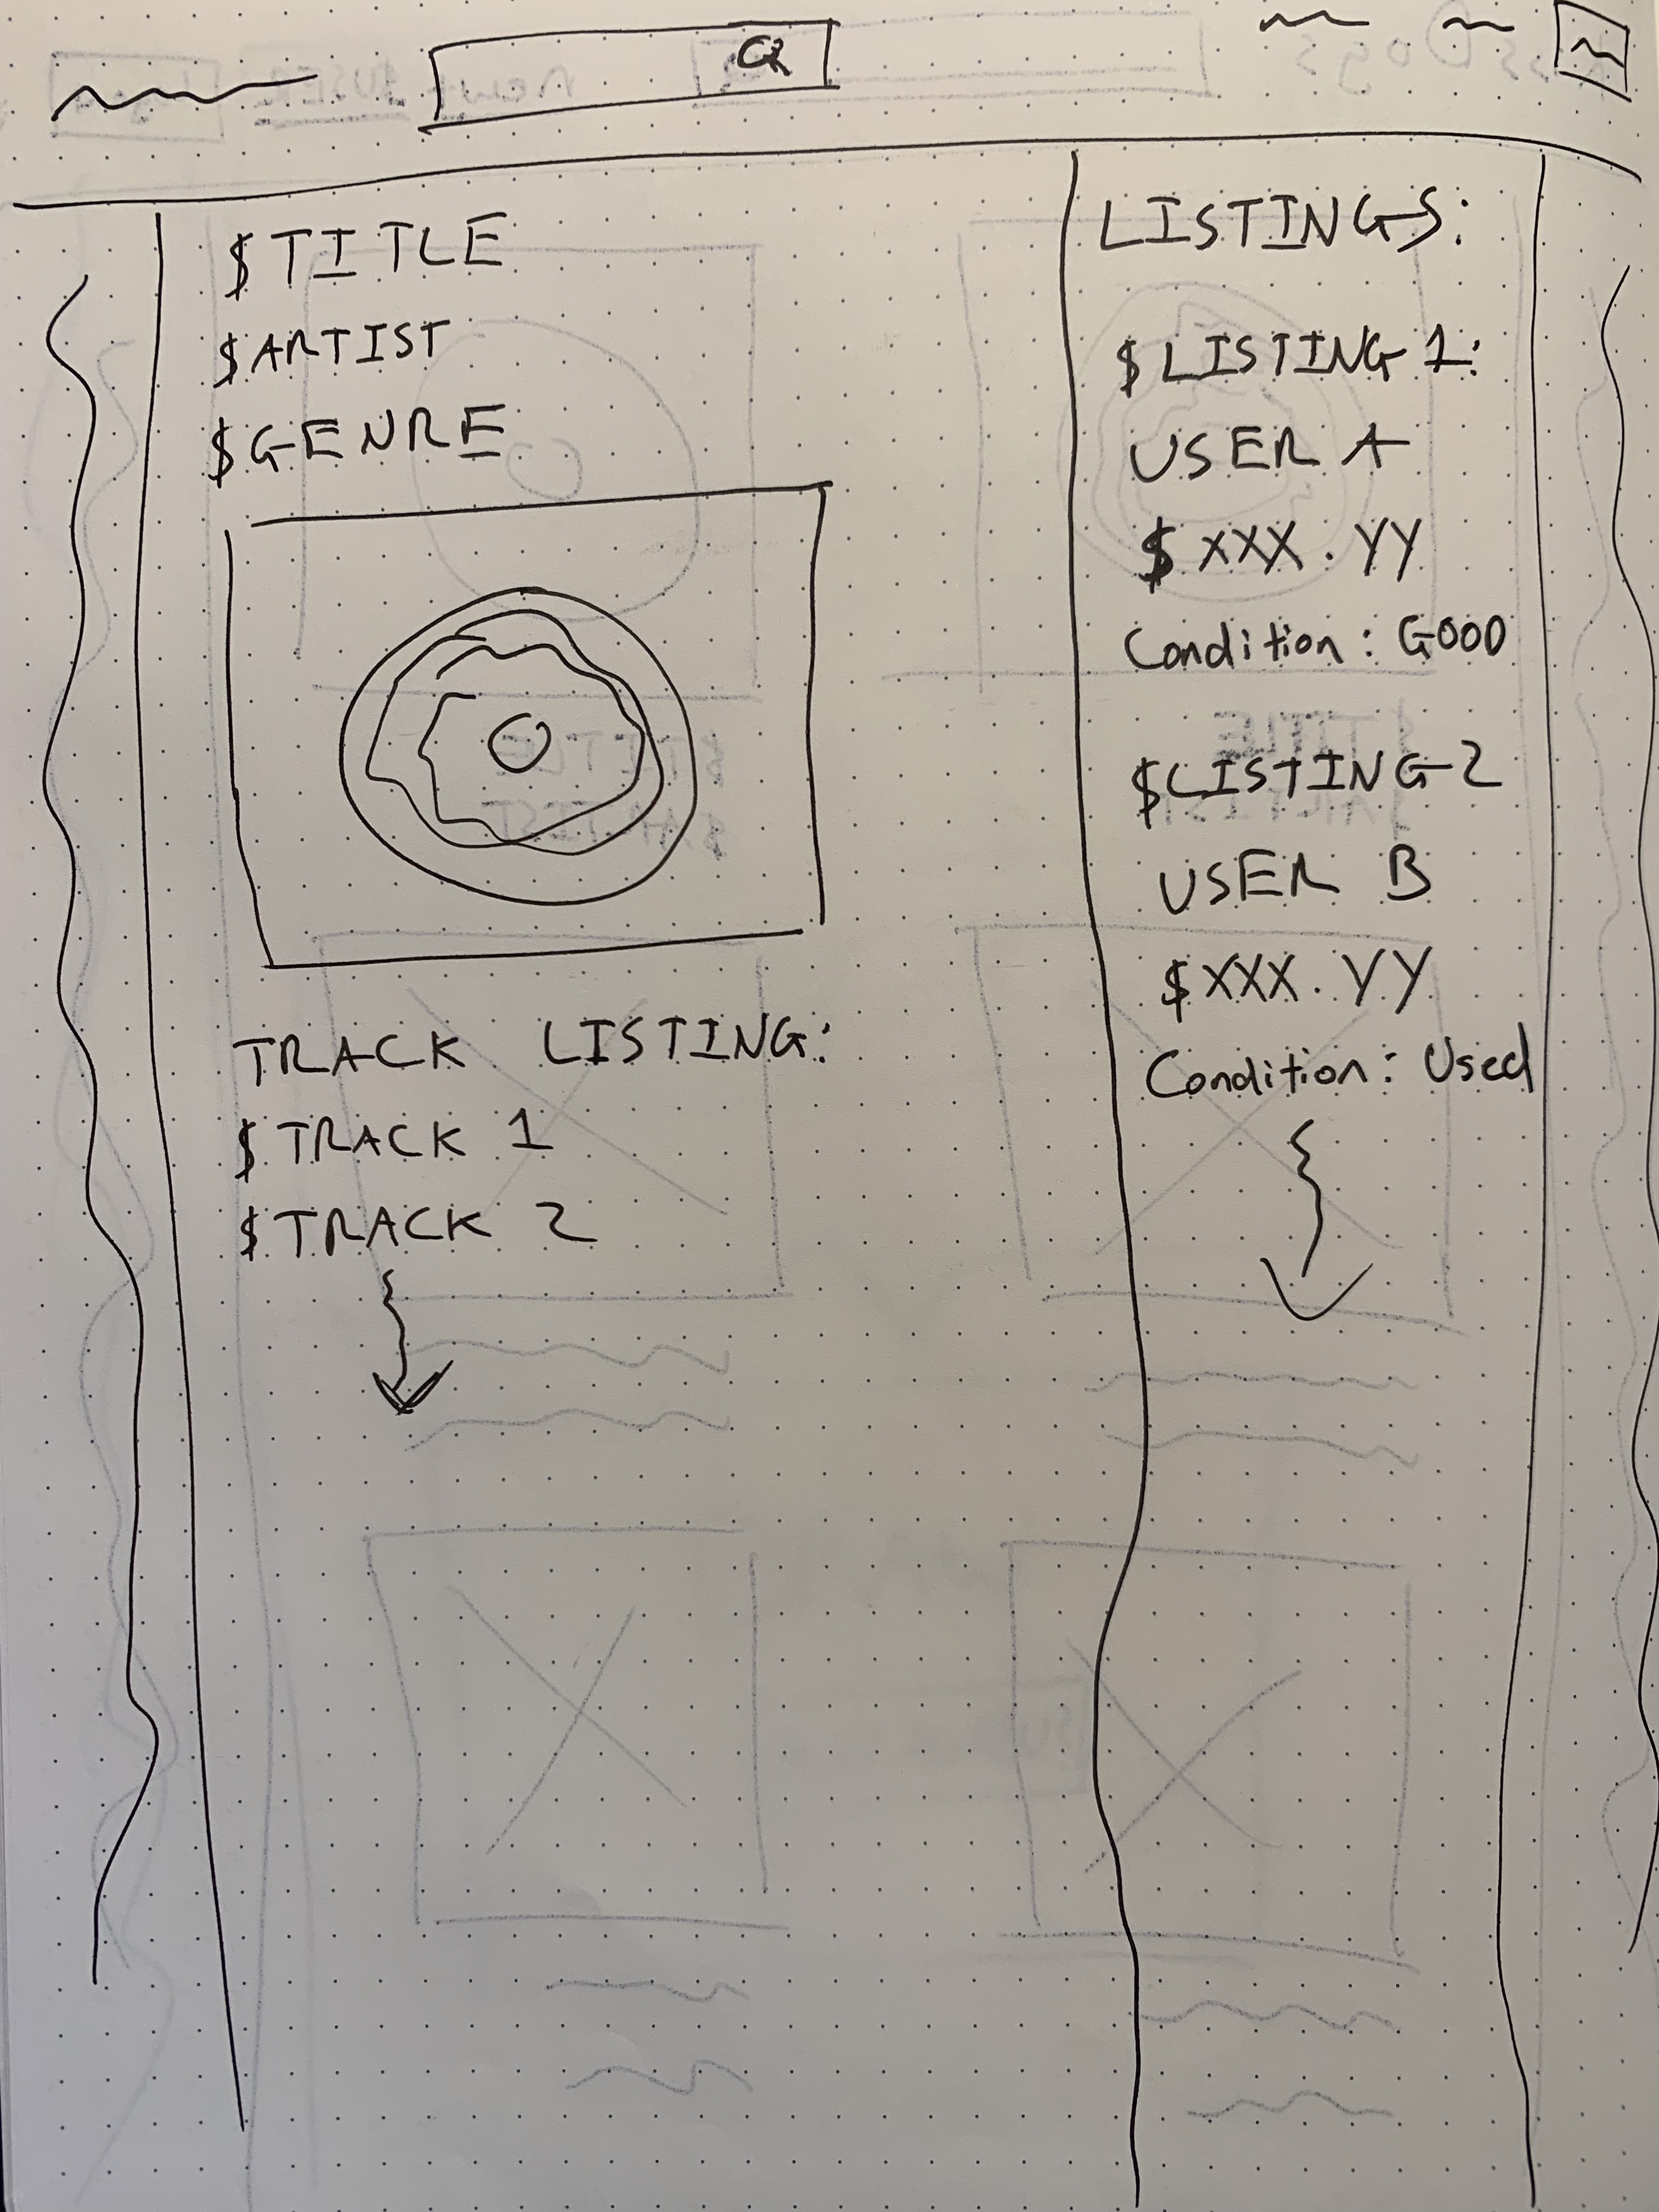 $TITLE
$ARTIST
$GENRE
TRACK LISTING:
$TRACK 1
$TRACK 2
LISTINGS:
$LISTING 1:
USER A
$XXX.YY
Condition: GOOD
$LISTING 2
USER B
$XXX.YY
Condition: Used